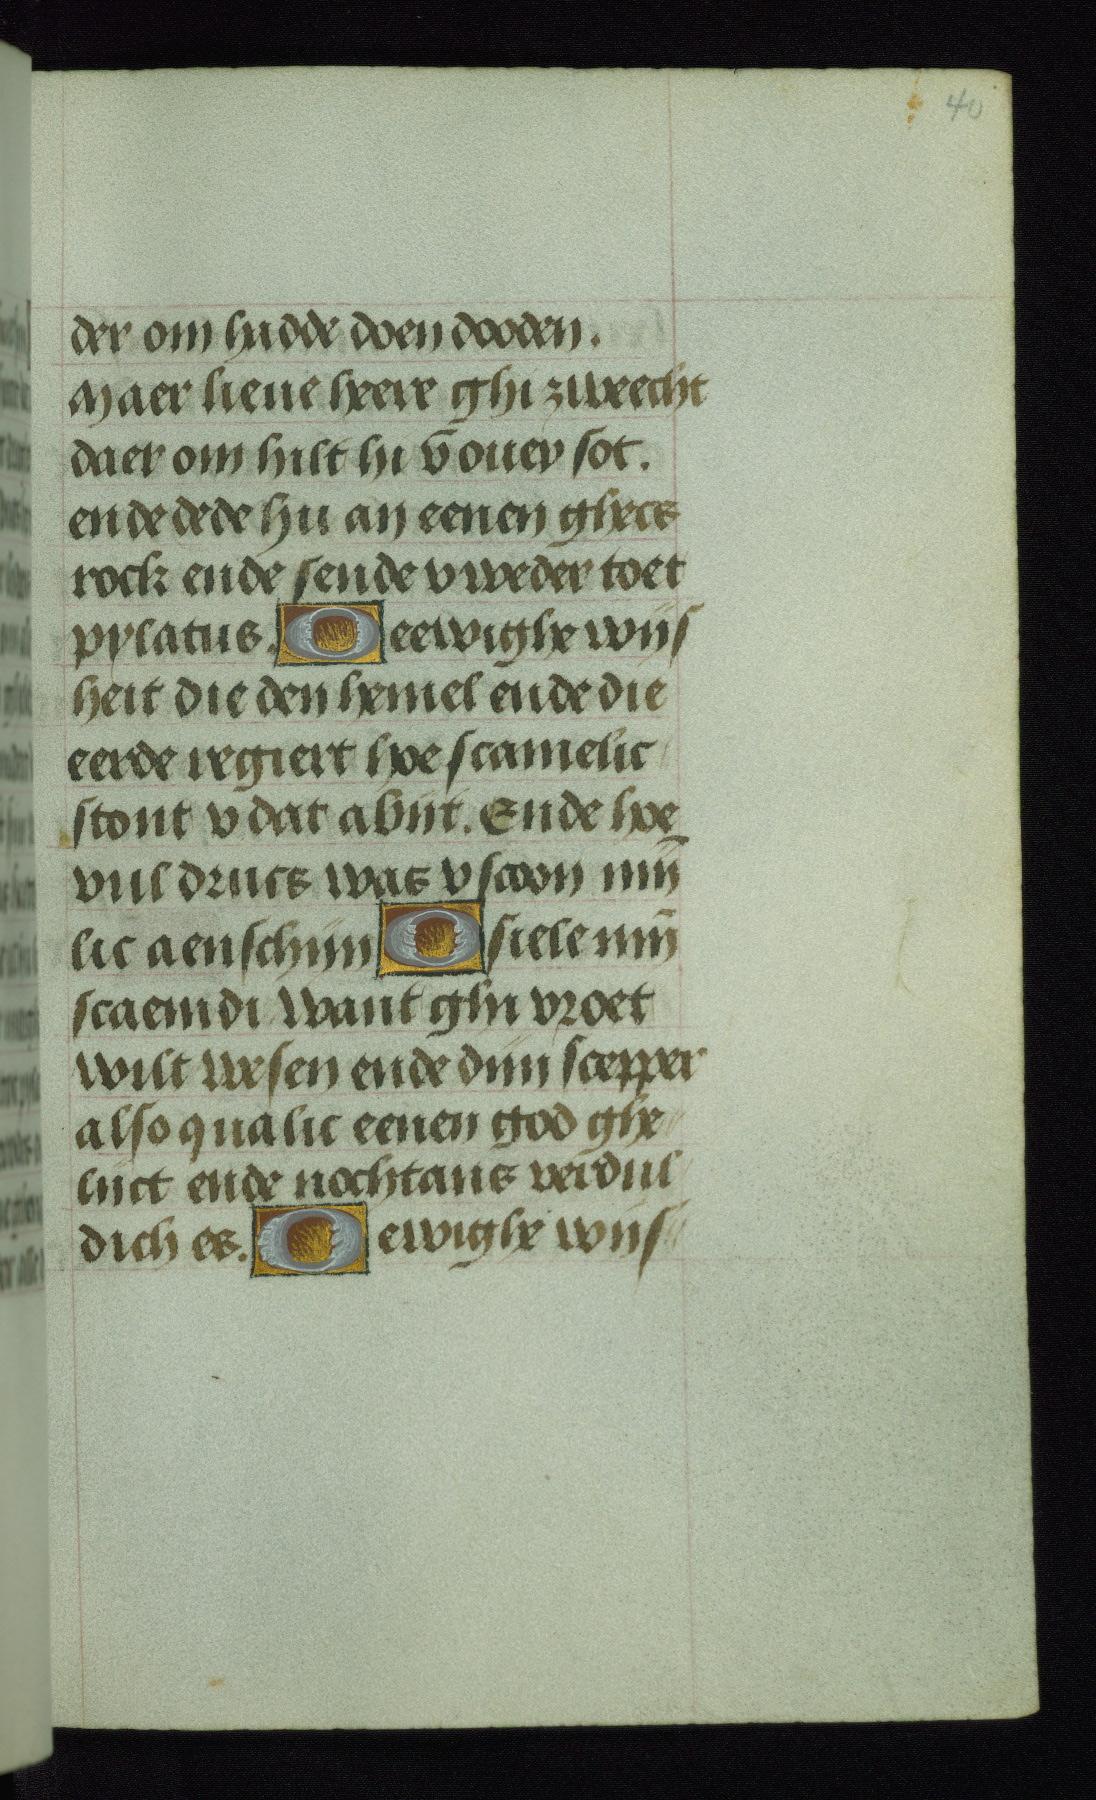 40
der om hudde doen dooden.
Maer lieue heere ghi zweecht
daer om hilt hi v̄ ouer sot.
ende dede hu an eenen ghecs
rock ende sende v weder toet
pylatus. O eewighe wijs
heit die den hemel ende die
eerde regiert hoe scamelic
stont v dat abijt. Ende hoe
vul drucs was v scoon min̄
lic aenschijn O siele mijn̄
scaemdi want ghi vroet
wilt wesen ende dijn scepper
also qualic eenen god ghe
lijct ende nochtans verdul
dich es. O ewighe wijs